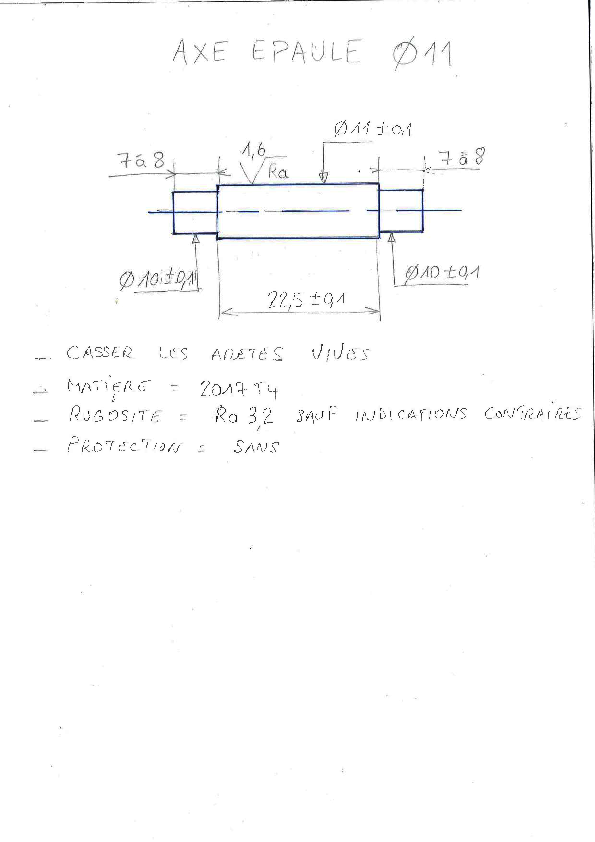 AXE EPAULE Ø11
Ø11 ± 0,1
7 à 8
1,6
Ra
7 à 8
Ø10 ± 0,1
Ø10 ± 0,1
22,5 ± 0,1
- CASSER LES ARETES VIVES
- MATIÈRE = 2017 T4
- RUGOSITE = Ra 3,2 SAUF INDICATIONS CONTRAIRES
- PROTECTION = SANS